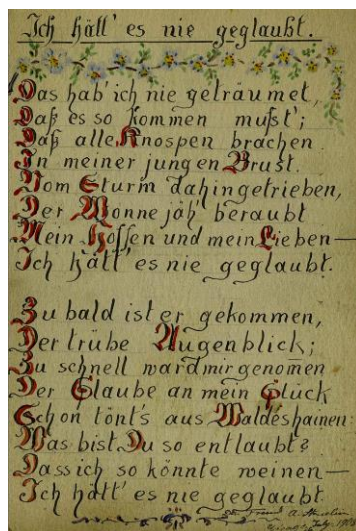 Ich hätt' es nie geglaubt.
Das hab' ich nie geträumet,
Daß es so kommen mußt';
Daß alle Knospen brachen
In meiner jungen Brust.
Vom Sturm dahingetrieben,
Der Wonne jäh beraubt
Mein Hoffen und mein Lieben—
Ich hätt' es nie geglaubt.
Zu bald ist er gekommen,
Der trübe Augenblick;
Zu schnell ward mir genomen
Der Glaube an mein Glück
Schon tönt's aus Waldeshainen:
Was bist Du so entlaubt?
Dass ich so könnte weinen—
Ich hätt' es nie geglaubt
A.